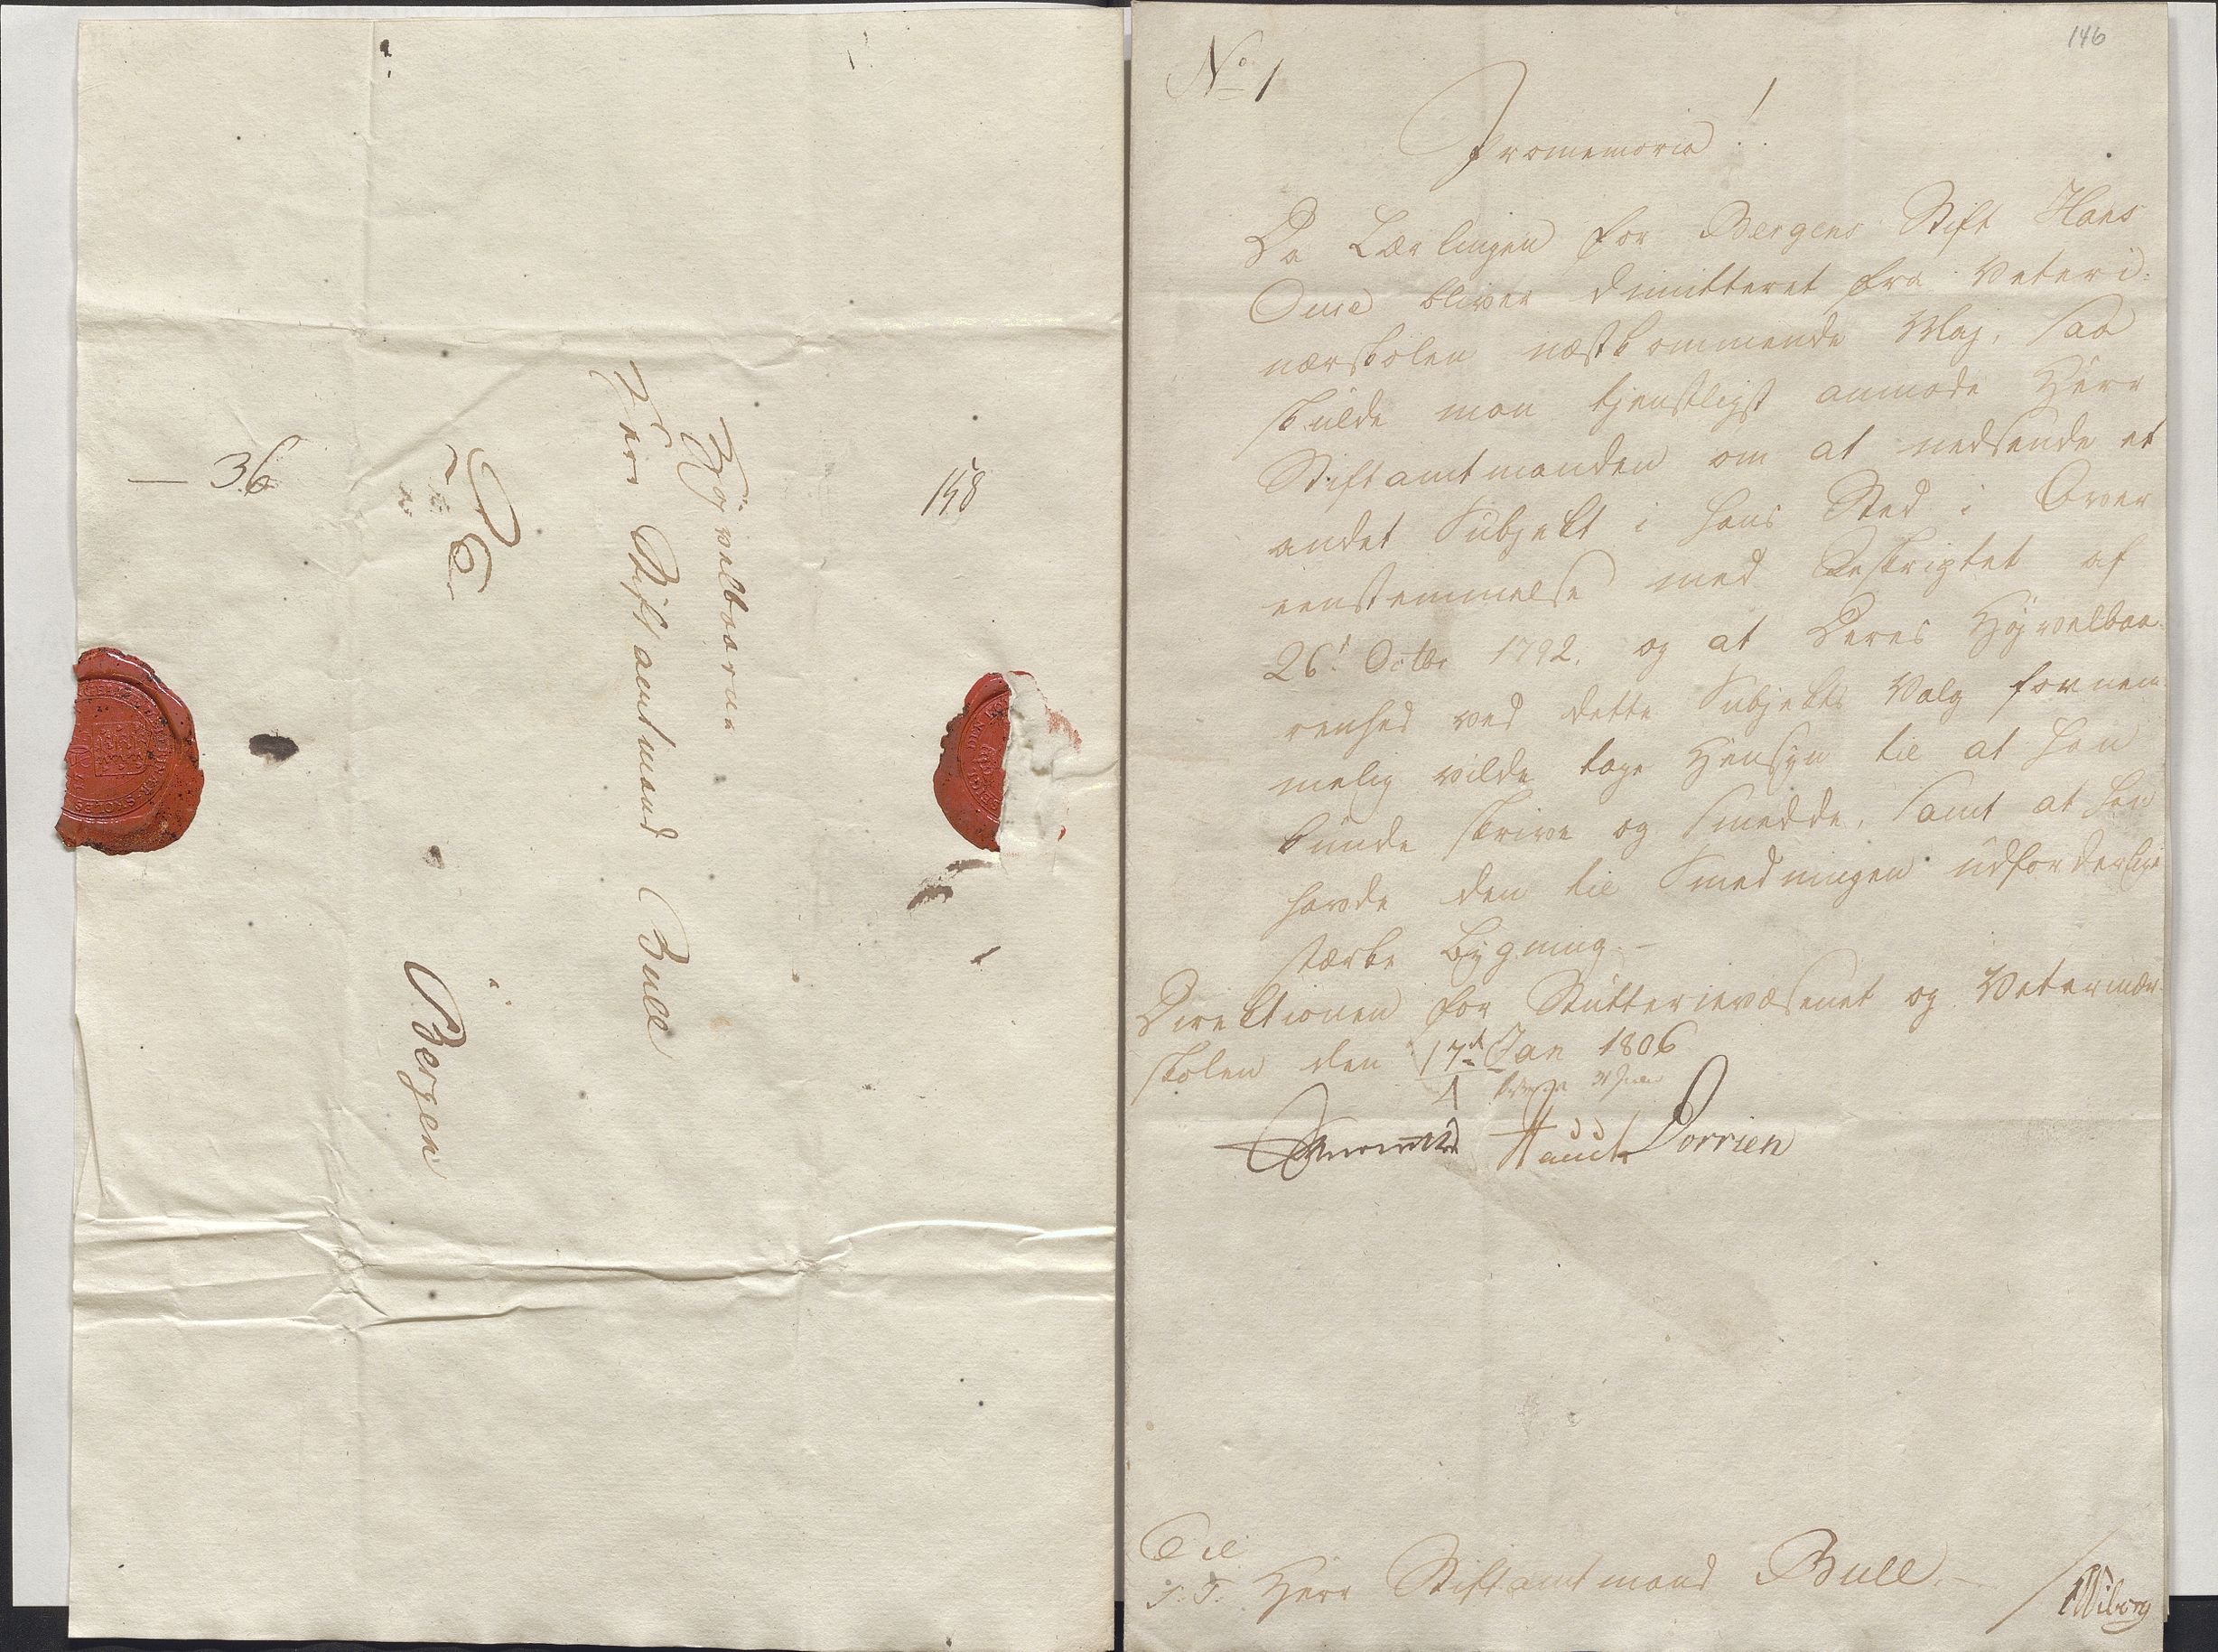 36
158
Höjvelbaarne
Herr Stiftamtmand Bull
i
Bergen
146
No 1
Promemoria!
Da Lærlingen for Bergens Stift Hans
bliver dimitteret fra Veteri-
nærskolen næstkommende Maj, saa
skulde man tjenstligst anmode Herr
Stiftamtmanden om at nedsende et
andet Subjekt i hans Sted i Over
eenstemmelse med Reskriptet af
26d Octbr 1792. og at Deres Høivelbaa-
renhed ved dette Subjekts Valg fornem-
melig vilde tage Hensyn til at han
kunde skrive og smedde, samt at han
havde den til Smedningen udforderlige
stærke Bygning. -
Direktionen for Stutterievæsenet og Veterinær-
skolen den 17d Jan 1806
Hauch Dorrien
Til
S. T. Herr Stiftamtmand Bull. -
Wiborg